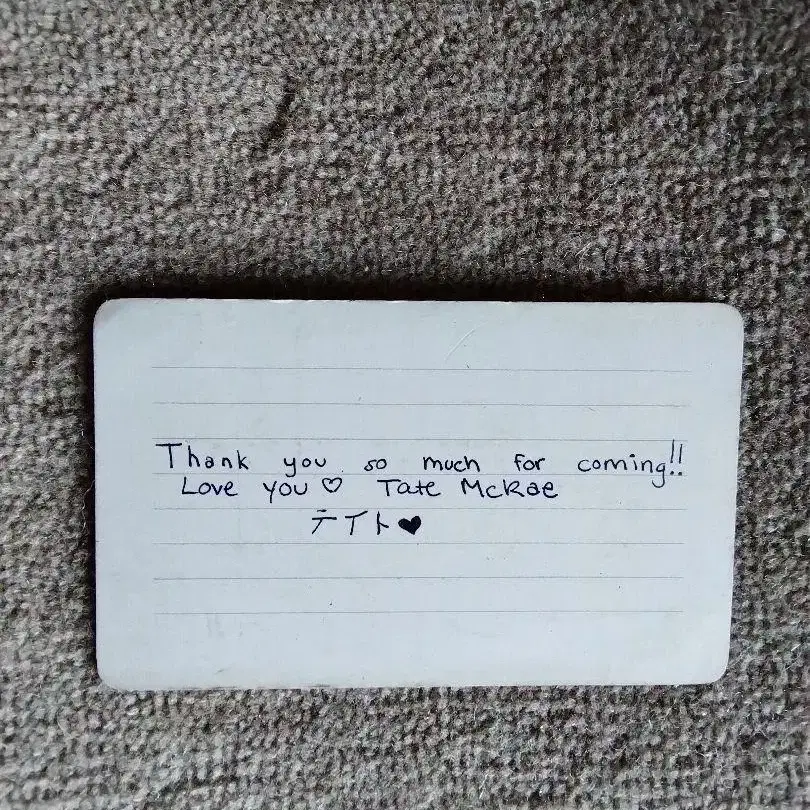 Thank you so much for coming!!
Love you ♡ Tate McRae
テイト♥